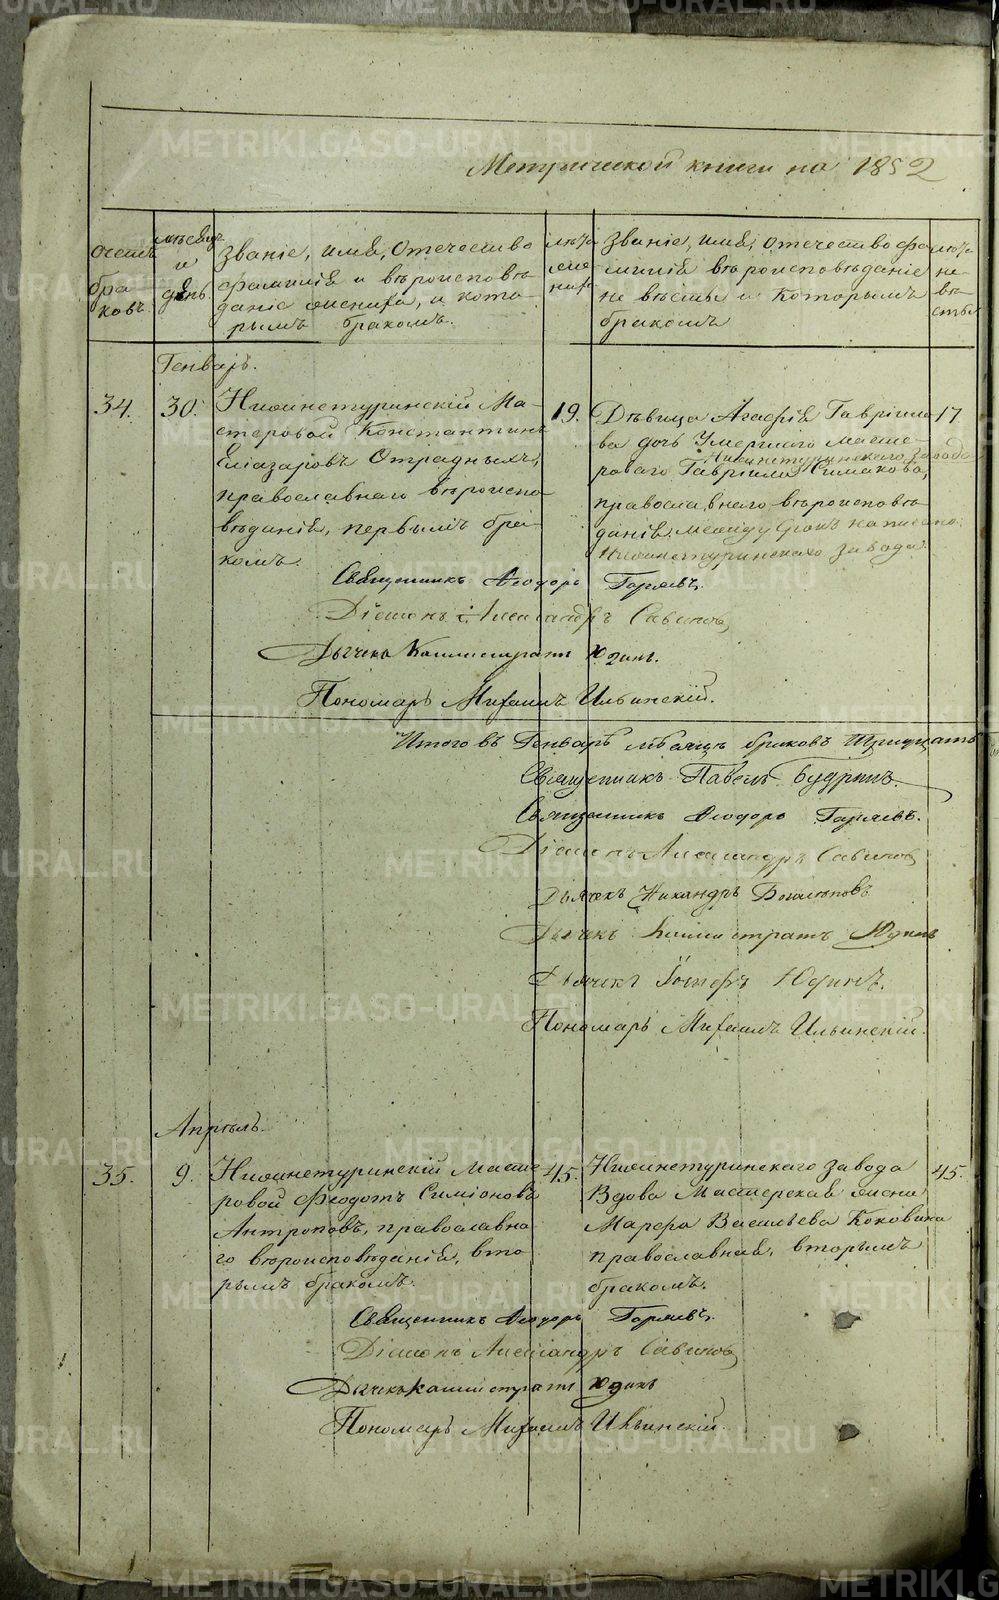 Метрической книги на 1852
Счетъ браковъ
мѣсяцъ и день
Званіе, имя, отечество
фамилія и вѣроисповѣ
даніе жениха, и кото-
рымъ бракомъ.
лѣта жениха
Званіе, имя, отечество фа
милія вѣроисповѣданіе
невѣсты и которымъ
бракомъ
лѣта невѣсты
Генварь.
34.
30.
Нижнетуринскій Ма-
стеровой Константинъ
Еліазаровъ Отрадныхъ,
православнаго вѣроиспо-
вѣданія, первымъ бра-
комъ.
19.
Дѣвица Агафія Гаврило
ва дочь Умершаго Масте-
Нижнетуринскаго завода
роваго Гавріила Симакова,
православнаго вѣроисповѣ
данія. между строкъ написано:
Нижнетуринскаго завода.
17
Священникъ Ѳеодоръ Горяевъ.
Діаконъ Александръ Савиновъ
Дьячекъ Каллистратъ Юдинъ.
Пономарь Михаилъ Ильинскій.
Итого въ Генварѣ мѣсяцѣ браковъ тридцать
Священникъ Павелъ Будринъ.
Священникъ Ѳеодоръ Горяевъ.
Діаконъ Александръ Савиновъ
Дьячекъ Никандръ Боголѣповъ
Дьячекъ Каллистратъ Юдинъ
Дьячекъ Іосифъ Юдинъ.
Пономарь Михаилъ Ильинскій.
Апрѣль.
35.
9.
Нижнетуринскій Масте
ровой Ѳеодотъ Симіоновъ
Антроповъ, православна
го вѣроисповѣданія, вто
рымъ бракомъ.
45.
Нижнетуринскаго завода
Вдова Мастерская жена
Марѳа Васильева Коковина
православная, вторымъ
бракомъ.
45.
Священникъ Ѳеодоръ Горяевъ.
Діаконъ Александръ Савиновъ
Дьячекъ Каллистратъ Юдинъ
Пономарь Михаилъ Ильинскій.
METRIKI.GASO-URAL.RU